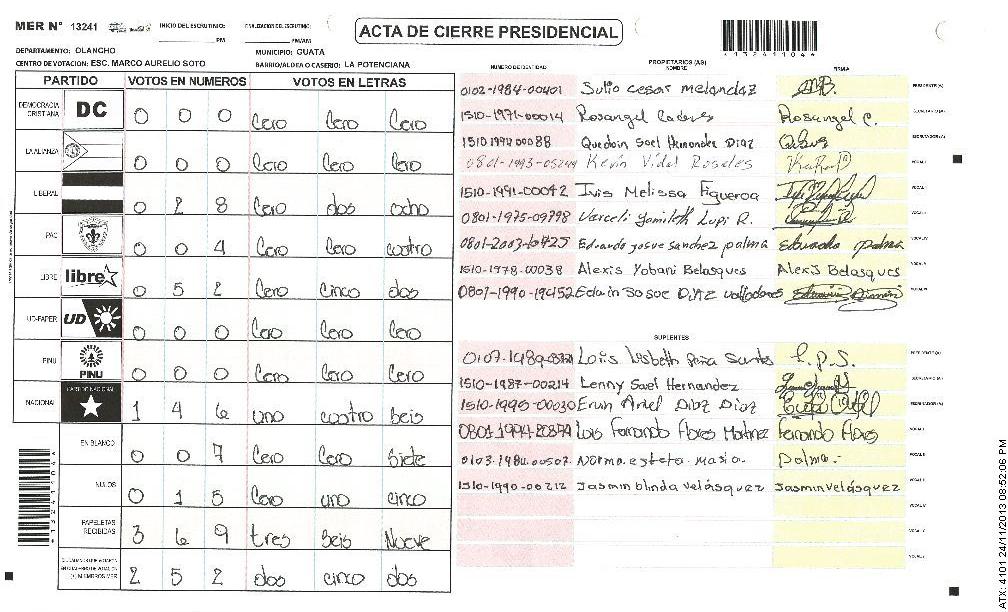 MER N° 13241 INICIO DEL ESCRUTINIO: PM FINALIZACION DEL ESCRUTINIO: PM/AM
ACTA DE CIERRE PRESIDENCIAL
DEPARTAMENTO: OLANCHO MUNICIPIO: GUATA
CENTRO DE VOTACION: ESC. MARCO AURELIO SOTO BARRIO/ALDEA O CASERIO: LA POTENCIANA
PARTIDO VOTOS EN NUMEROS VOTOS EN LETRAS
DEMOCRACIA CRISTIANA DC 0 0 0 Cero Cero Cero
LA ALIANZA 0 0 0 Cero Cero Cero
LIBERAL 0 2 8 Cero dos ocho
PAC 0 0 4 Cero Cero cuatro
LIBRE libre 0 5 2 Cero cinco dos
UD-FAPER UD 0 0 0 Cero Cero Cero
PINU PINU 0 0 0 Cero Cero Cero
NACIONAL PARTIDO NACIONAL 1 4 6 uno cuatro Seis
EN BLANCO 0 0 7 Cero Cero Siete
NULOS 0 1 5 Cero uno cinco
PAPELETAS RECIBIDAS 3 6 9 tres Seis Nueve
2 5 2 dos cinco dos
NUMERO DE IDENTIDAD PROPIETARIOS (AS) NOMBRE FIRMA
0102-1984-00401 Sulio Cesar Melendaz PRESIDENTE (A)
1510-1971-00014 Rosangel Caderes Rosangel C. SECRETARIO (A)
1510 1992 00088 Quedoin Sael Hernandez Diaz ESCRUTADOR (A)
Kevin Vidal Rosales VOCAL I
1510-1991-00042 Ivis Melissa Figueroa
0801-1975-09798 Yamileth Lupi R.
Eduardo Josue sanchez palma Eduardo palma
1510-1978-00038 Alexis Yobani Belasques Alexis Belasques
0801-1990-19452 Edwin Josue Diaz valladares
SUPLENTES
Lois Lisbeth Peña Santos L.P.S. PRESIDENTE (A)
1510-1987-00214 Lenny Sael Hernandez SECRETARIO (A)
1510-1995-00030 Erwin Ariel Diaz Diaz ESCRUTADOR (A)
Luis Fernando Flores Martinez Fernando Flores
0103-1984-00507 Norma esteta Masia Palma
1510-1990-00212 Jasmin blinda velásquez Jasmin velásquez
ATX: 4101 24/11/2013 08:52:06 PM